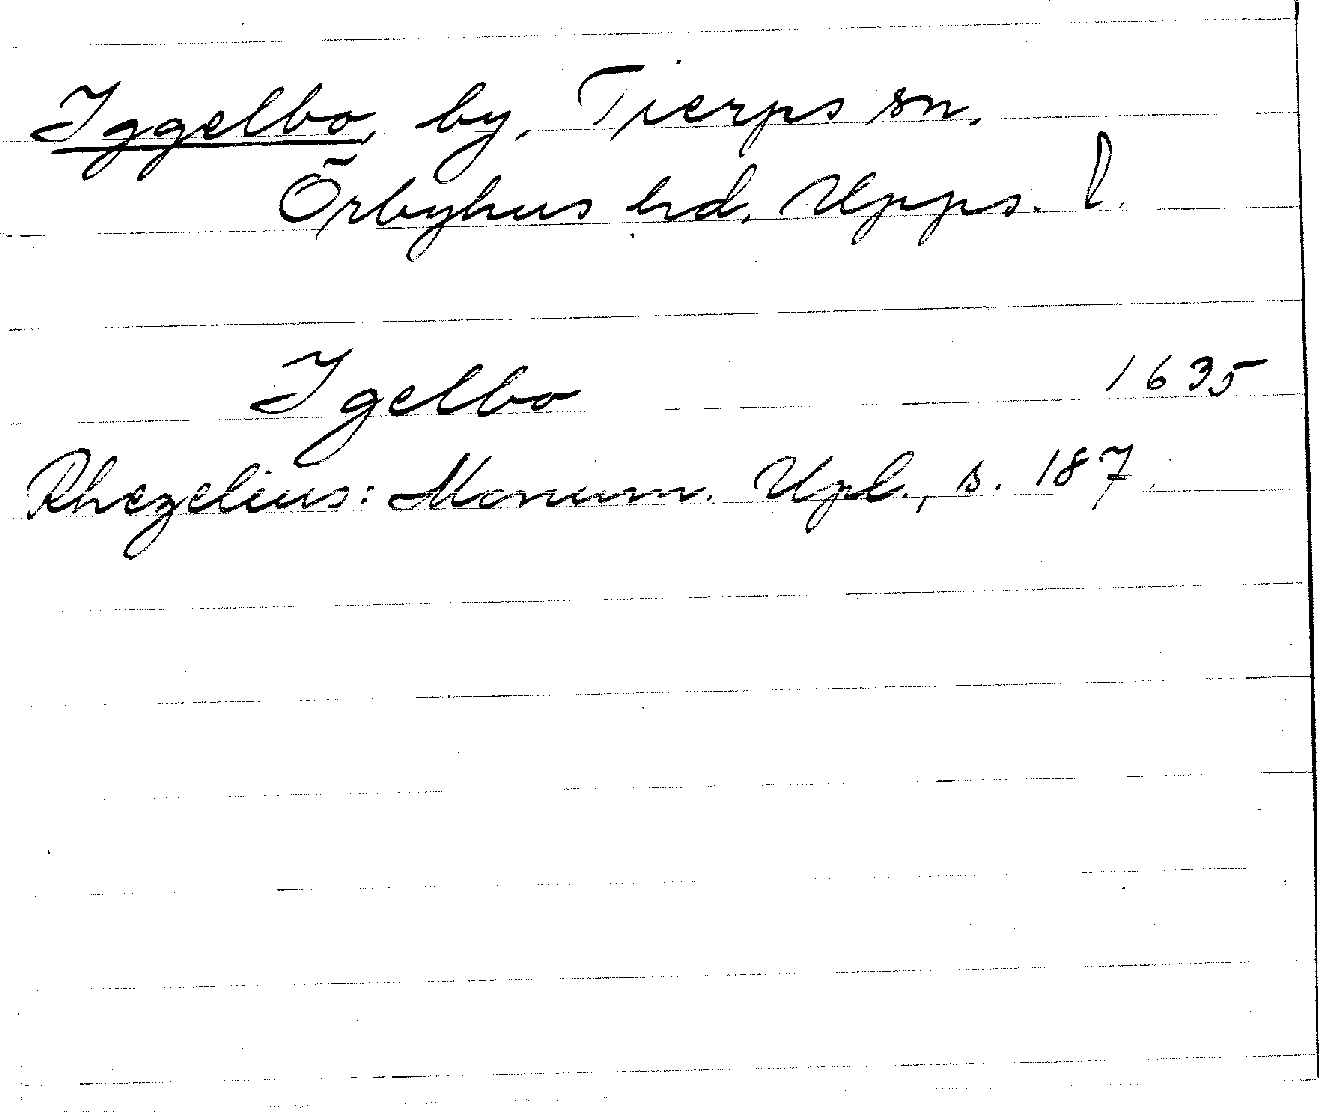 Iggelbo, by, Tierps sn.
Örbyhus hd. Upps. l.
Igelbo 1635
Rhezelius: Monum. Upl., s. 187.